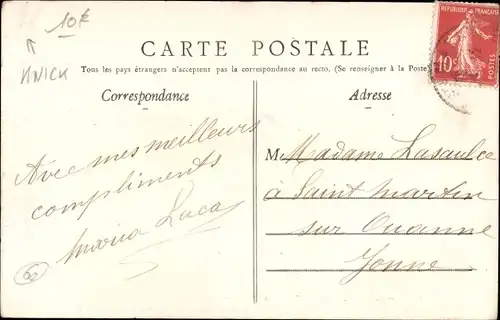 10€
UNICK
CARTE POSTALE
Tous les pays étrangers n'acceptent pas la correspondance au recto, (Se renseigner à la Poste)
Correspondance
Adresse
10c
POSTES
Avec mes meilleurs
compliments
Maria Lucas
60
M Madame Lasaulce
à Saint Martin
sur Ouanne
Yonne